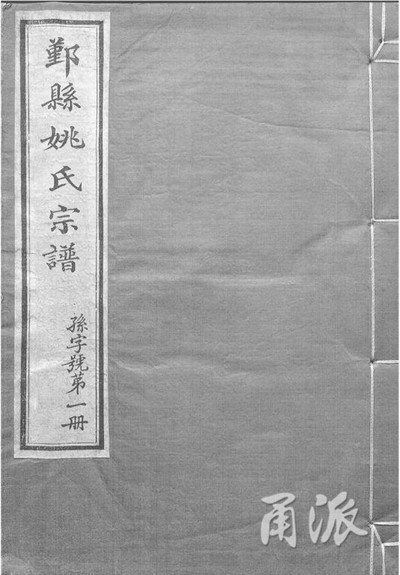 鄞縣姚氏宗譜
孫字號第一冊
甬派